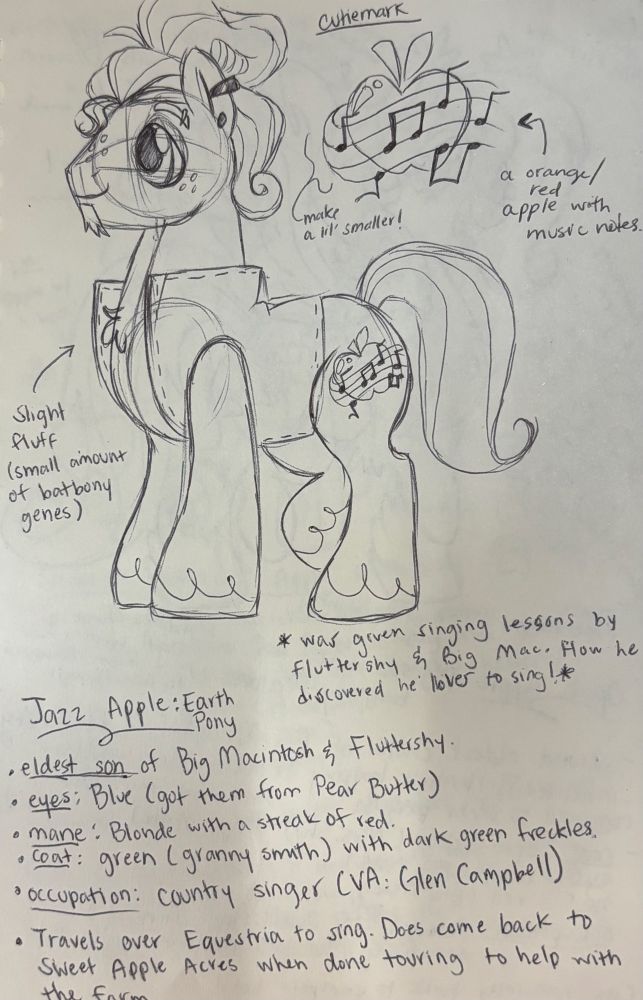 cutiemark
make
a lil' smaller!
a orange/
red
apple with
music notes.
Slight
fluff
(small amount
of batbony
genes)
* was given singing lessons by
fluttershy & Big Mac. How he
discovered he lover to sing! *
Jazz Apple: Earth
Pony
• eldest son of Big Macintosh & Fluttershy.
• eyes: Blue (got them from Pear Butter)
• mane: Blonde with a streak of red.
• coat: green (granny smith) with dark green freckles.
• occupation: country singer (VA: Glen Campbell)
• Travels over Equestria to sing. Does come back to
Sweet Apple Acres when done touring to help with
the farm